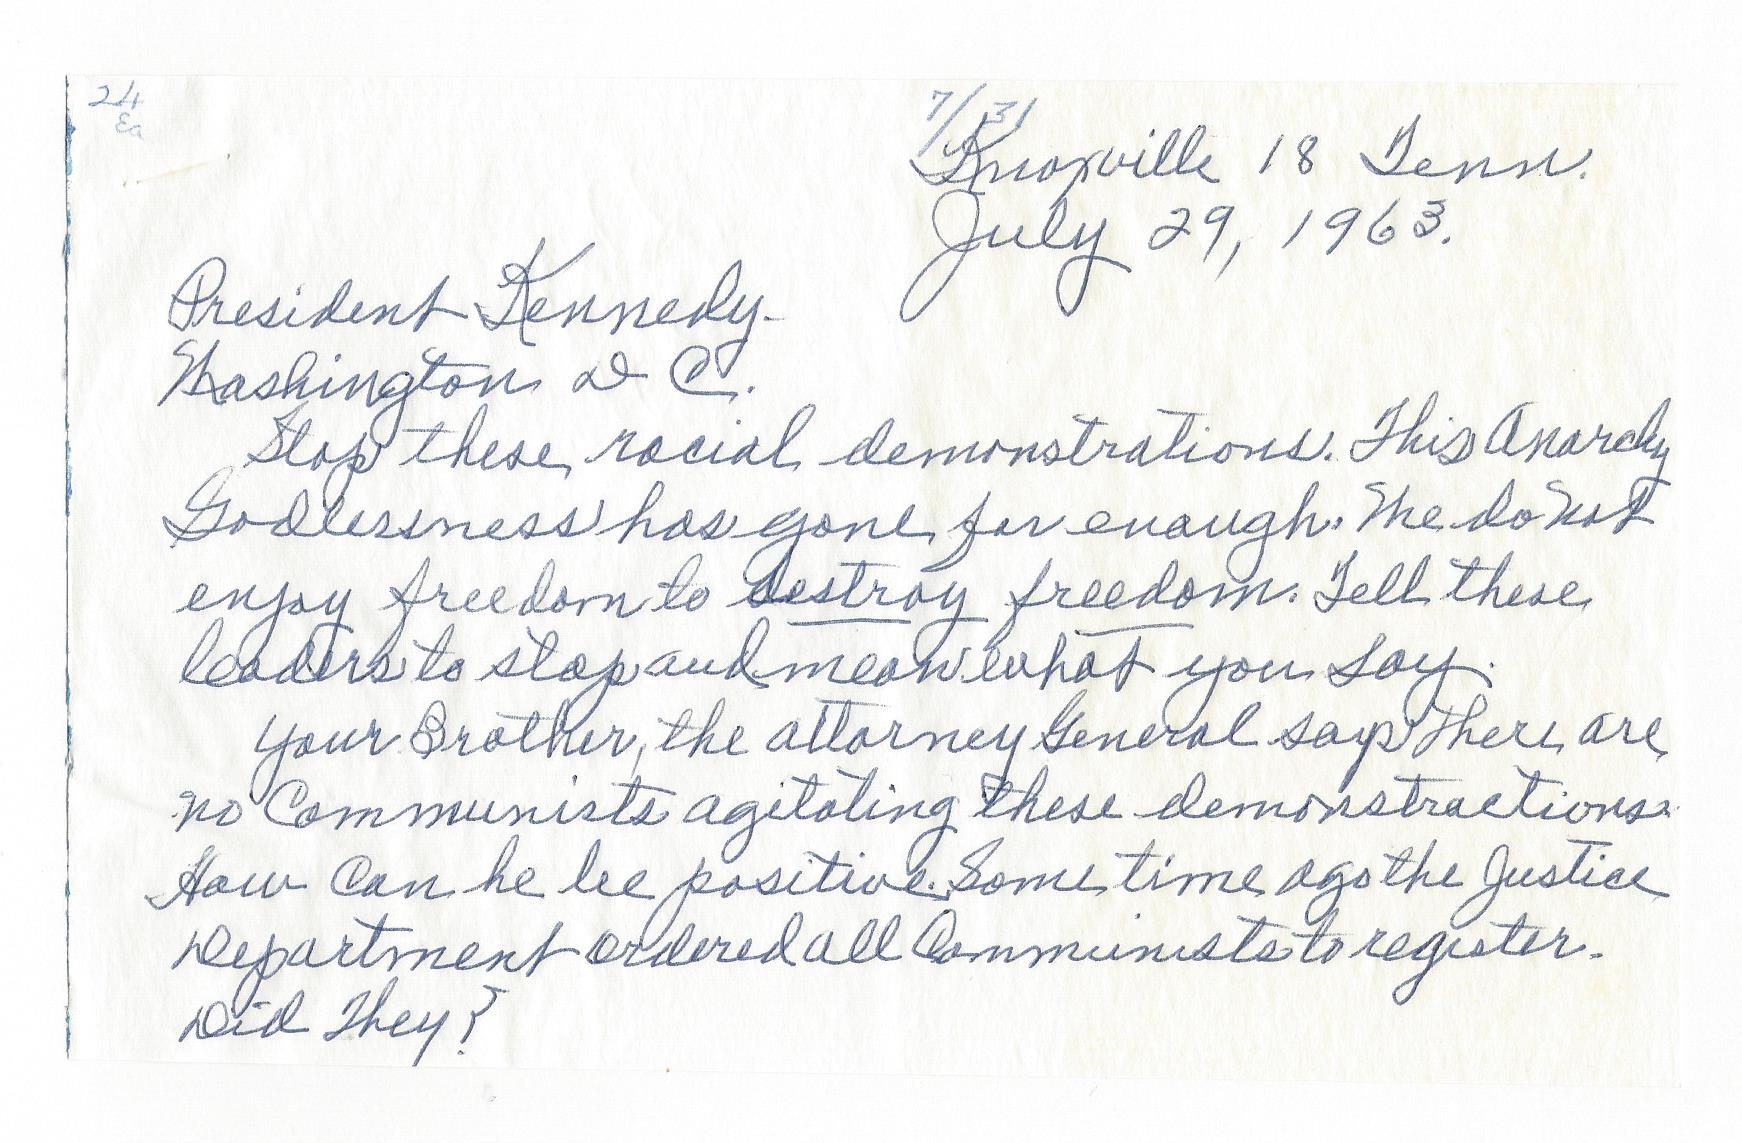 24
Ea
7/31
Knoxville 18 Tenn.
July 29, 1963.
President Kennedy-
Washington D C.
Stop these racial demonstrations. This Anarchy
Godlessness has gone far enough. We do Not
enjoy freedom to destroy freedom. Tell these
leaders to stop and mean what you say.
Your Brother, the attorney General says There are
no Communists agitating these demonstractions.
How Can he be positive. Some time ago the Justice
Department ordered all Communists to register.
Did They?